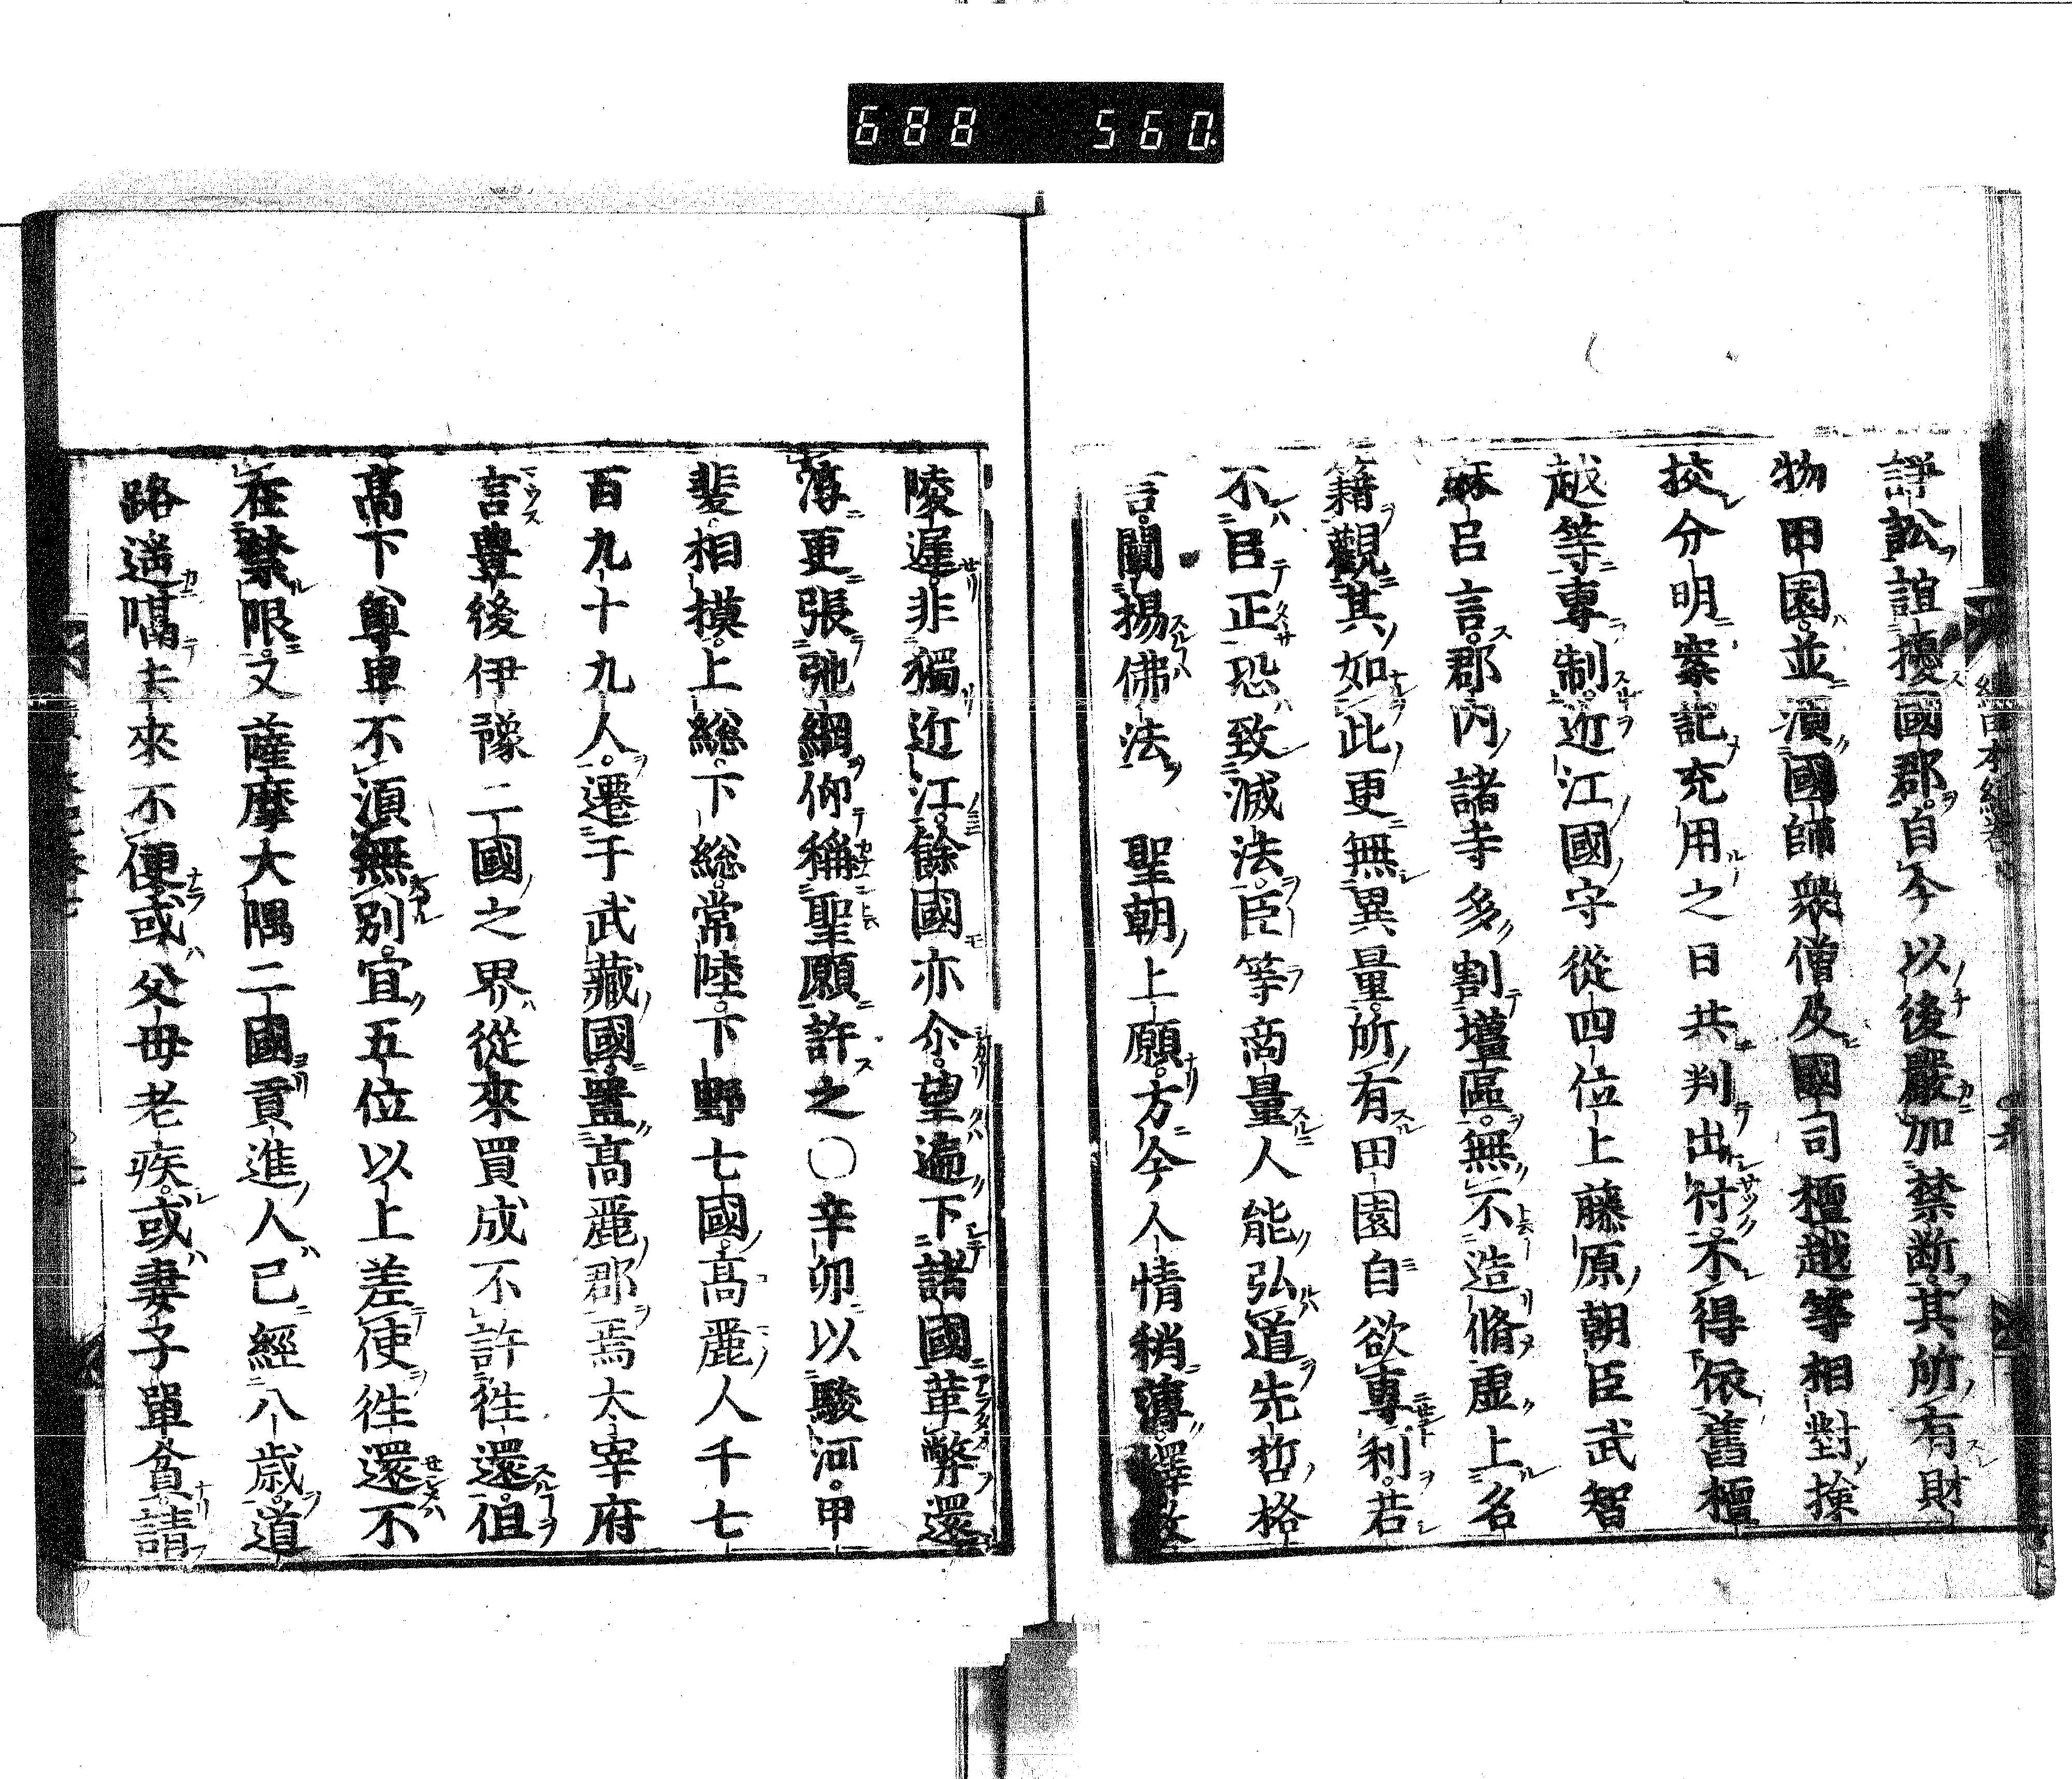 688 560
諍訟諠擾國郡自今以後嚴加禁断其所有財
物田園並湏國師衆僧及國司檀越等相對撿
挍分明案記充用之日共判出付不得依舊檀
越等專制近江國守從四位上藤原朝臣武智
麻呂言郡内諸寺多割壃區無不造脩虚上名
籍觀其如此更無異量所有田園自欲專利若
不匡正恐致滅法臣等商量人能弘道先哲格
言闡揚佛法 聖朝上願方今人情稍薄釋教
陵遲非獨近江餘國亦尒望遍下諸國革弊還
淳更張弛綱仰稱聖願許之〇辛卯以駿河甲
斐相摸上総下総常陸下野七國髙麗人千七
百九十九人遷于武藏國置髙麗郡焉大宰府
言豊後伊豫二國之界從來買成不許徃還但
髙下尊卑不湏無別宜五位以上差使徃還不
在禁限又薩摩大隅二國貢進人已經八歳道
路遥隔去來不便或父母老疾或妻子單貧請